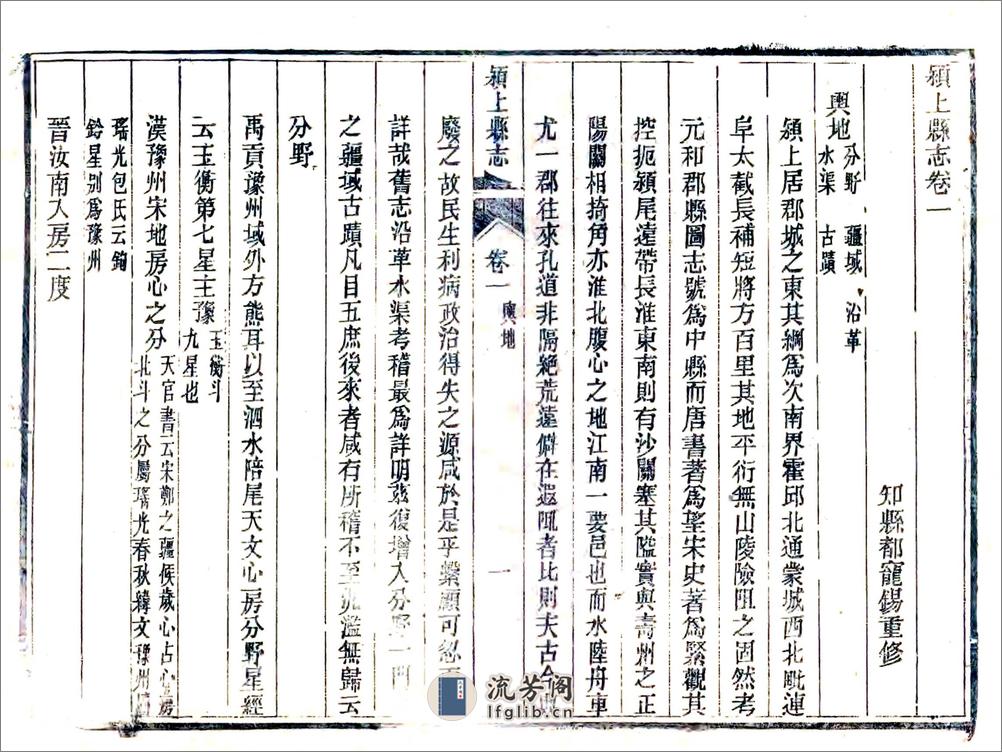 潁上縣志卷一
知縣都寵錫重修
輿地 分野 疆域 沿革
水渠 古蹟
潁上居郡城之東其綱爲次南界霍邱北通蒙城西北毗連
阜太截長補短將方百里其地平衍無山陵險阻之固然考
元和郡縣圖志號爲中縣而唐書著爲望宋史著爲緊觀其
控扼潁尾遠帶長淮東南則有沙關塞其隘實與壽州之正
陽關相掎角亦淮北腹心之地江南一要邑也而水陸舟車
尤一郡往來孔道非隔絶荒遠僻在遐陬者比則夫古今
潁上縣志 卷一 輿地 一
廢之故民生利病政治得失之源咸於是乎繫顧可忽
詳哉舊志沿革水渠考稽最爲詳明茲復增入分野一門
之疆域古蹟凡目五庶後來者咸有所稽不至兆濫無歸云
分野
禹貢豫州域外方熊耳以至泗水陪尾天文心房分野星經
云玉衡第七星主豫 玉衡斗
九星也
漢豫州宋地房心之分 天官書云宋鄭之疆候歲心占心房
北斗之分屬瑤光春秋緯文豫州屬
瑤光包氏云鉤
鈐星别爲豫州
晉汝南入房二度
流芳阁
lfglib.cn